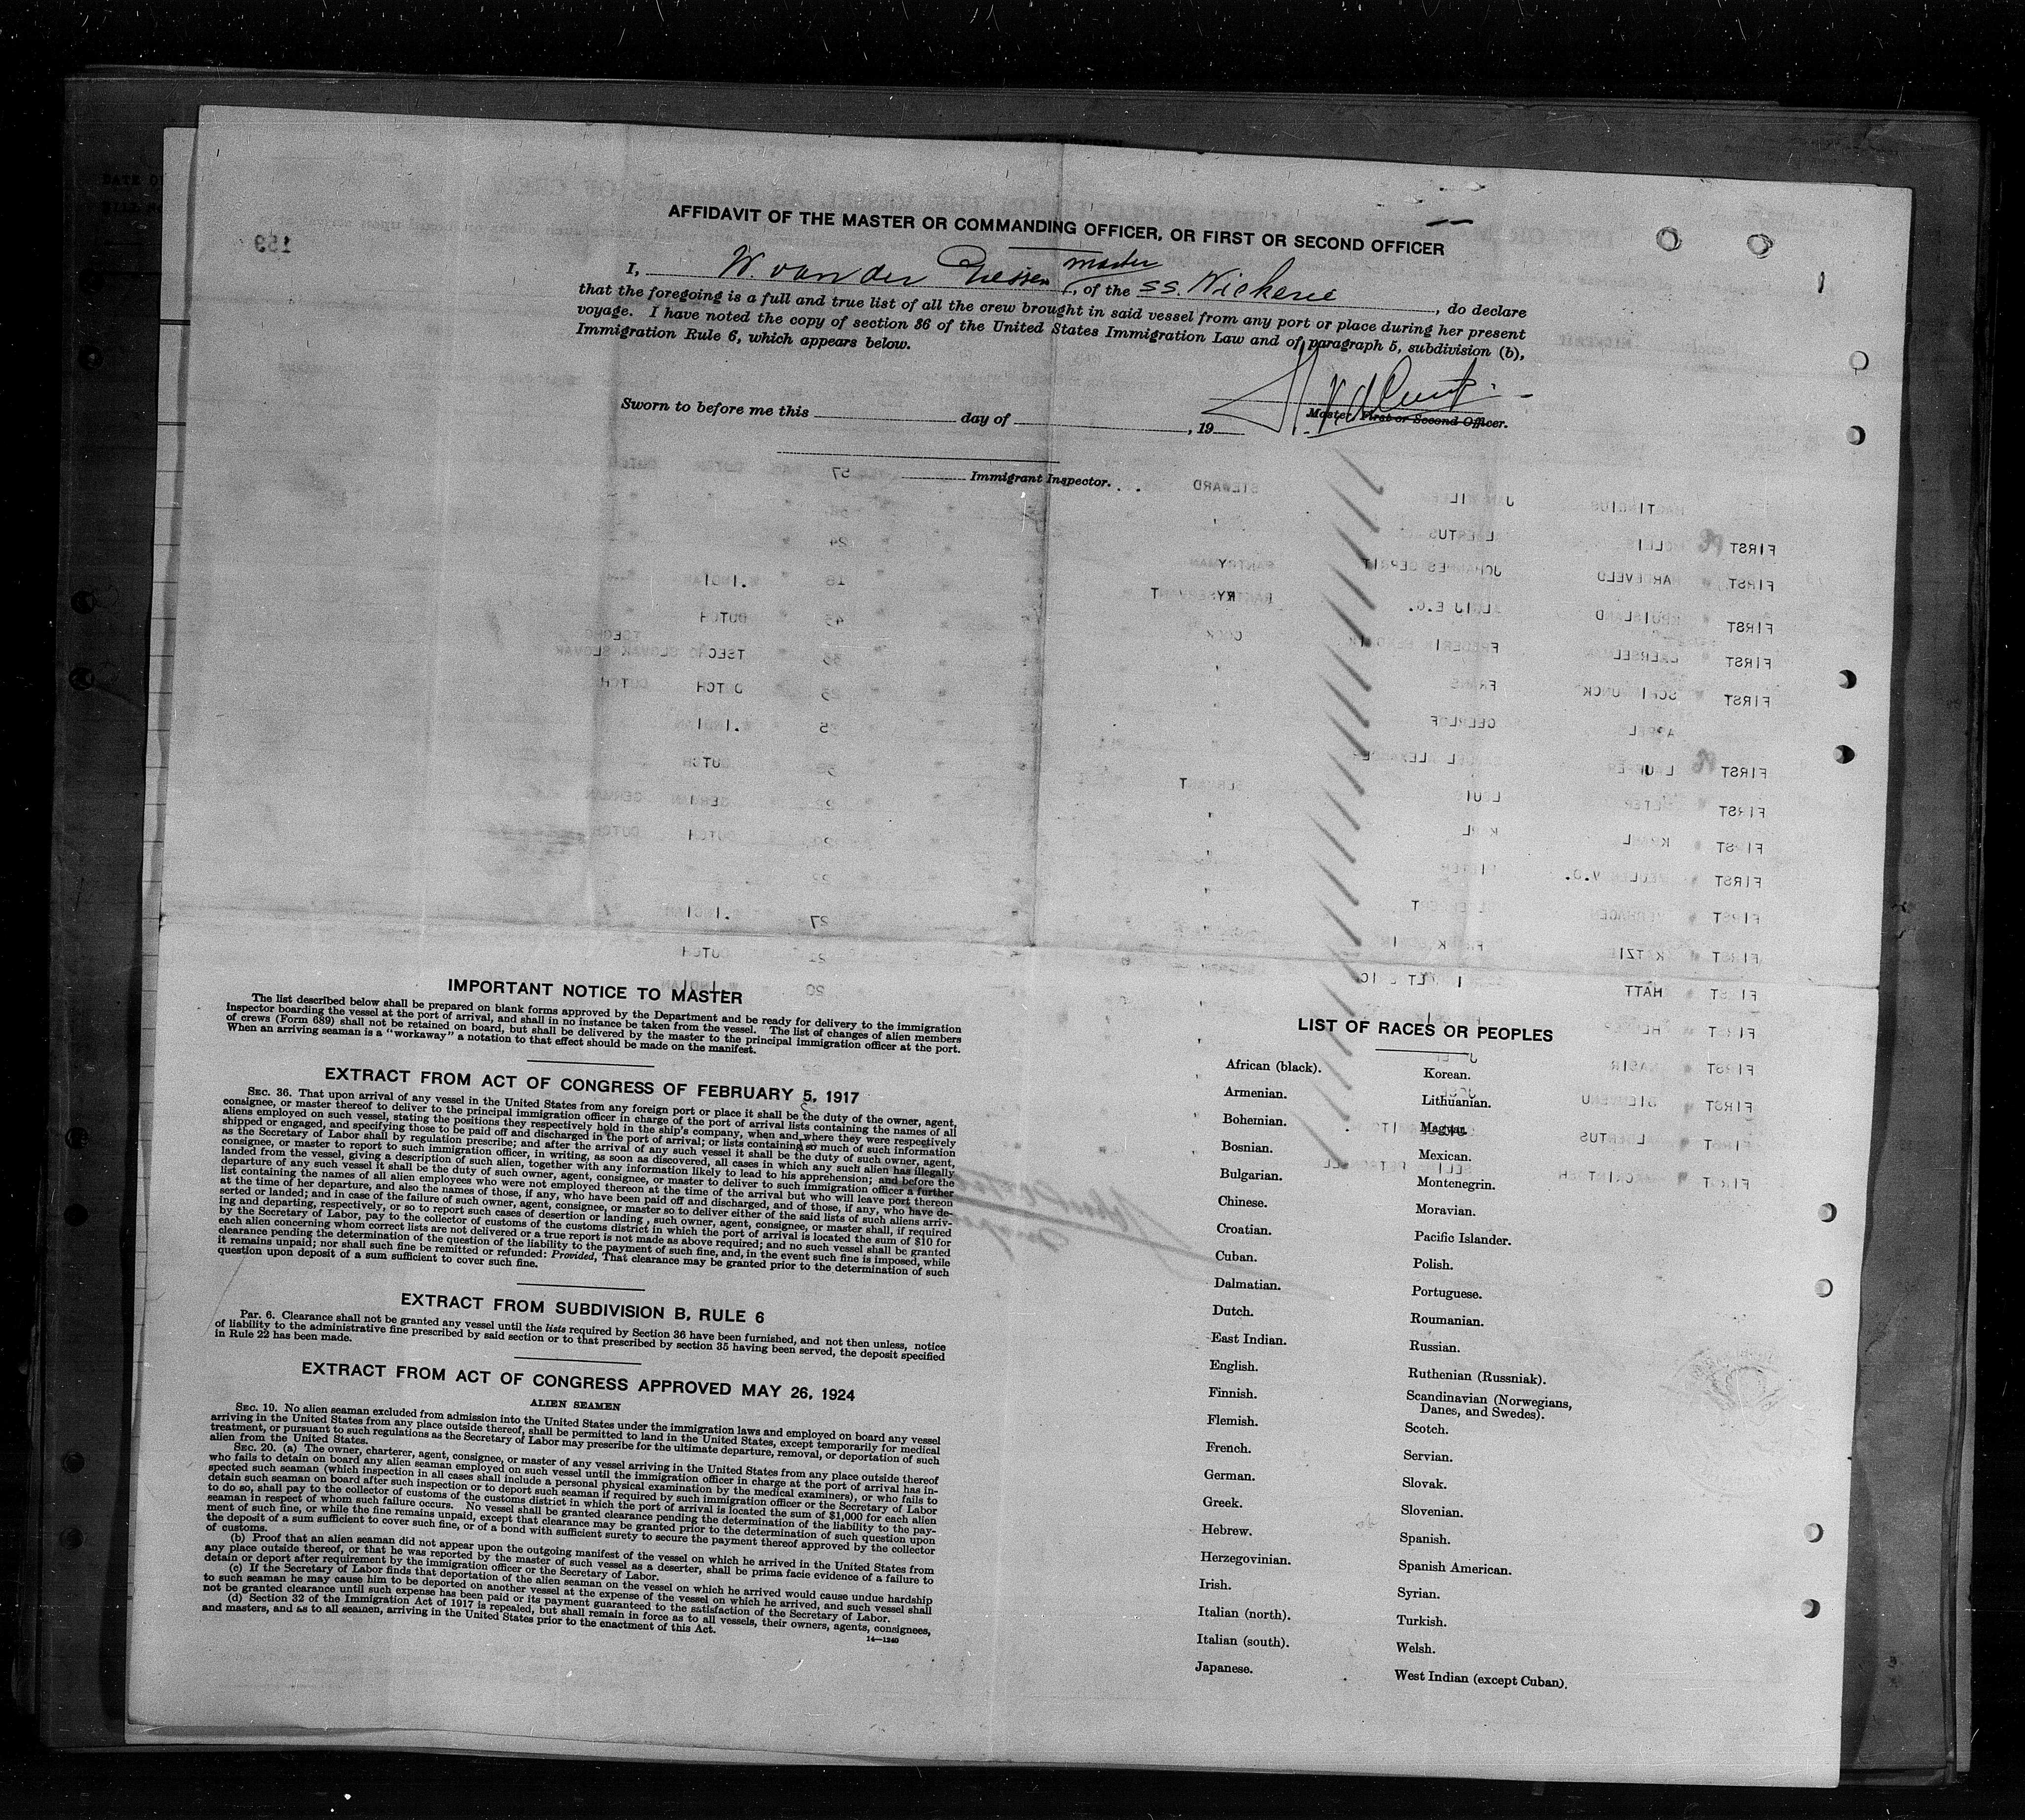 AFFIDAVIT OF THE MASTER OR COMMANDING OFFICER, OR FIRST OR SECOND OFFICER
I, W. van der Giessen master, of the SS. Nickerie, do declare
that the foregoing is a full and true list of all the crew brought in said vessel from any port or place during her present
voyage. I have noted the copy of section 36 of the United States Immigration Law and of paragraph 5, subdivision (b),
Immigration Rule 6, which appears below.
Master, First or Second Officer.
Sworn to before me this day of , 19
Immigrant Inspector.
159
IMPORTANT NOTICE TO MASTER
The list described below shall be prepared on blank forms approved by the Department and be ready for delivery to the immigration
inspector boarding the vessel at the port of arrival, and shall in no instance be taken from the vessel. The list of changes of alien members
of crews (Form 689) shall not be retained on board, but shall be delivered by the master to the principal immigration officer at the port.
When an arriving seaman is a "workaway" a notation to that effect should be made on the manifest.
EXTRACT FROM ACT OF CONGRESS OF FEBRUARY 5, 1917
SEC. 36. That upon arrival of any vessel in the United States from any foreign port or place it shall be the duty of the owner, agent,
consignee, or master thereof to deliver to the principal immigration officer in charge of the port of arrival lists containing the names of all
aliens employed on such vessel, stating the positions they respectively hold in the ship's company, when and where they were respectively
shipped or engaged, and specifying those to be paid off and discharged in the port of arrival; or lists containing so much of such information
as the Secretary of Labor shall by regulation prescribe; and after the arrival of any such vessel it shall be the duty of such owner, agent,
consignee, or master to report to such immigration officer, in writing, as soon as discovered, all cases in which any such alien has illegally
landed from the vessel, giving a description of such alien, together with any information likely to lead to his apprehension; and before the
departure of any such vessel it shall be the duty of such owner, agent, consignee, or master to deliver to such immigration officer a further
list containing the names of all alien employees who were not employed thereon at the time of the arrival but who will leave port thereon
at the time of her departure, and also the names of those, if any, who have been paid off and discharged, and of those, if any, who have de-
serted or landed; and in case of the failure of such owner, agent, consignee, or master so to deliver either of the said lists of such aliens arriv-
ing and departing, respectively, or so to report such cases of desertion or landing, such owner, agent, consignee, or master shall, if required
by the Secretary of Labor, pay to the collector of customs of the customs district in which the port of arrival is located the sum of $10 for
each alien concerning whom correct lists are not delivered or a true report is not made as above required; and no such vessel shall be granted
clearance pending the determination of the question of the liability to the payment of such fine, and, in the event such fine is imposed, while
it remains unpaid; nor shall such fine be remitted or refunded: Provided, That clearance may be granted prior to the determination of such
question upon deposit of a sum sufficient to cover such fine.
EXTRACT FROM SUBDIVISION B, RULE 6
Par. 6. Clearance shall not be granted any vessel until the lists required by Section 36 have been furnished, and not then unless, notice
of liability to the administrative fine prescribed by said section or to that prescribed by section 35 having been served, the deposit specified
in Rule 22 has been made.
EXTRACT FROM ACT OF CONGRESS APPROVED MAY 26, 1924
ALIEN SEAMEN
SEC. 19. No alien seaman excluded from admission into the United States under the immigration laws and employed on board any vessel
arriving in the United States from any place outside thereof, shall be permitted to land in the United States, except temporarily for medical
treatment, or pursuant to such regulations as the Secretary of Labor may prescribe for the ultimate departure, removal, or deportation of such
alien from the United States.
SEC. 20. (a) The owner, charterer, agent, consignee, or master of any vessel arriving in the United States from any place outside thereof
who fails to detain on board any alien seaman employed on such vessel until the immigration officer in charge at the port of arrival has in-
spected such seaman (which inspection in all cases shall include a personal physical examination by the medical examiners), or who fails to
detain such seaman on board after such inspection or to deport such seaman if required by such immigration officer or the Secretary of Labor
to do so, shall pay to the collector of customs of the customs district in which the port of arrival is located the sum of $1,000 for each alien
seaman in respect of whom such failure occurs. No vessel shall be granted clearance pending the determination of the liability to the pay-
ment of such fine, or while the fine remains unpaid, except that clearance may be granted prior to the determination of such question upon
the deposit of a sum sufficient to cover such fine, or of a bond with sufficient surety to secure the payment thereof approved by the collector
of customs.
(b) Proof that an alien seaman did not appear upon the outgoing manifest of the vessel on which he arrived in the United States from
any place outside thereof, or that he was reported by the master of such vessel as a deserter, shall be prima facie evidence of a failure to
detain or deport after requirement by the immigration officer or the Secretary of Labor.
(c) If the Secretary of Labor finds that deportation of the alien seaman on the vessel on which he arrived would cause undue hardship
to such seaman he may cause him to be deported on another vessel at the expense of the vessel on which he arrived, and such vessel shall
not be granted clearance until such expense has been paid or its payment guaranteed to the satisfaction of the Secretary of Labor.
(d) Section 32 of the Immigration Act of 1917 is repealed, but shall remain in force as to all vessels, their owners, agents, consignees,
and masters, and as to all seamen, arriving in the United States prior to the enactment of this Act.
14—1240
LIST OF RACES OR PEOPLES
African (black).
Armenian.
Bohemian.
Bosnian.
Bulgarian.
Chinese.
Croatian.
Cuban.
Dalmatian.
Dutch.
East Indian.
English.
Finnish.
Flemish.
French.
German.
Greek.
Hebrew.
Herzegovinian.
Irish.
Italian (north).
Italian (south).
Japanese.
Korean.
Lithuanian.
Magyar.
Mexican.
Montenegrin.
Moravian.
Pacific Islander.
Polish.
Portuguese.
Roumanian.
Russian.
Ruthenian (Russniak).
Scandinavian (Norwegians,
Danes, and Swedes).
Scotch.
Servian.
Slovak.
Slovenian.
Spanish.
Spanish American.
Syrian.
Turkish.
Welsh.
West Indian (except Cuban).